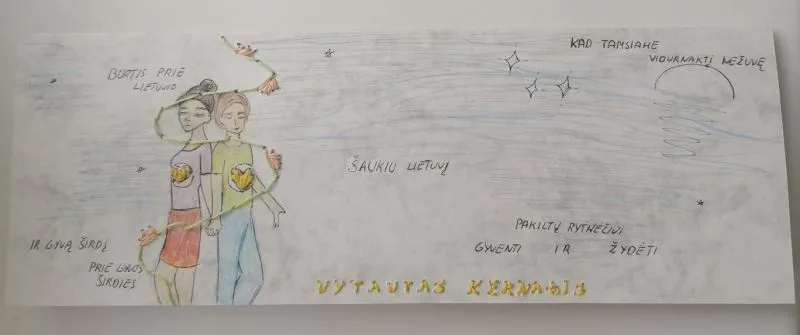 ŠAUKIU LIETUVĮ
BURTIS PRIE
LIETUVIO
IR GYVĄ ŠIRDĮ
PRIE GYVOS
ŠIRDIES
KAD TAMSIAME
VIDURNAKTĮ NEŽUVĘ
PAKILTŲ RYTMEČIUI
GYVENTI IR ŽYDĖTI
VYTAUTAS KERNAGIS